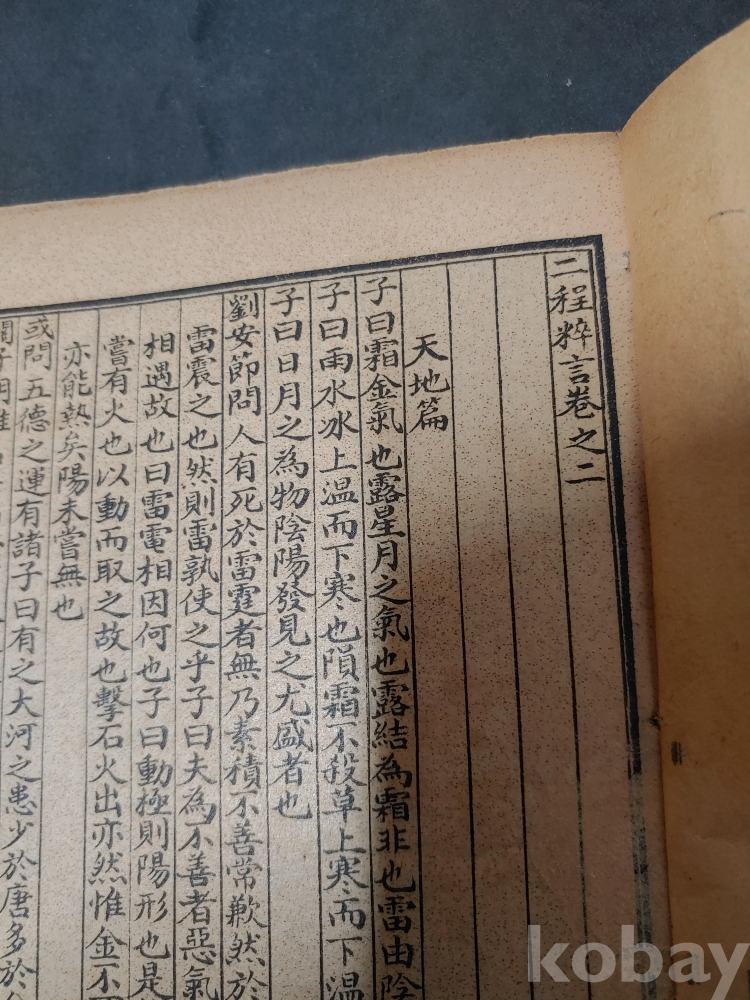 二程粹言卷之二
天地篇
子曰霜金氣也露星月之氣也露結為霜非也雷由陰
子曰雨水冰上温而下寒也隕霜不殺草上寒而下温
子曰日月之為物陰陽發見之尤盛者也
劉安節問人有死於雷霆者無乃素積不善常歉然於
雷震之也然則雷孰使之乎子曰夫為不善者惡氣
相遇故也曰雷電相因何也子曰動極則陽形也是
嘗有火也以動而取之故也擊石火出亦然惟金不
亦能熱矣陽未嘗無也
或問五德之運有諸子曰有之大河之患少於唐多於
kobay